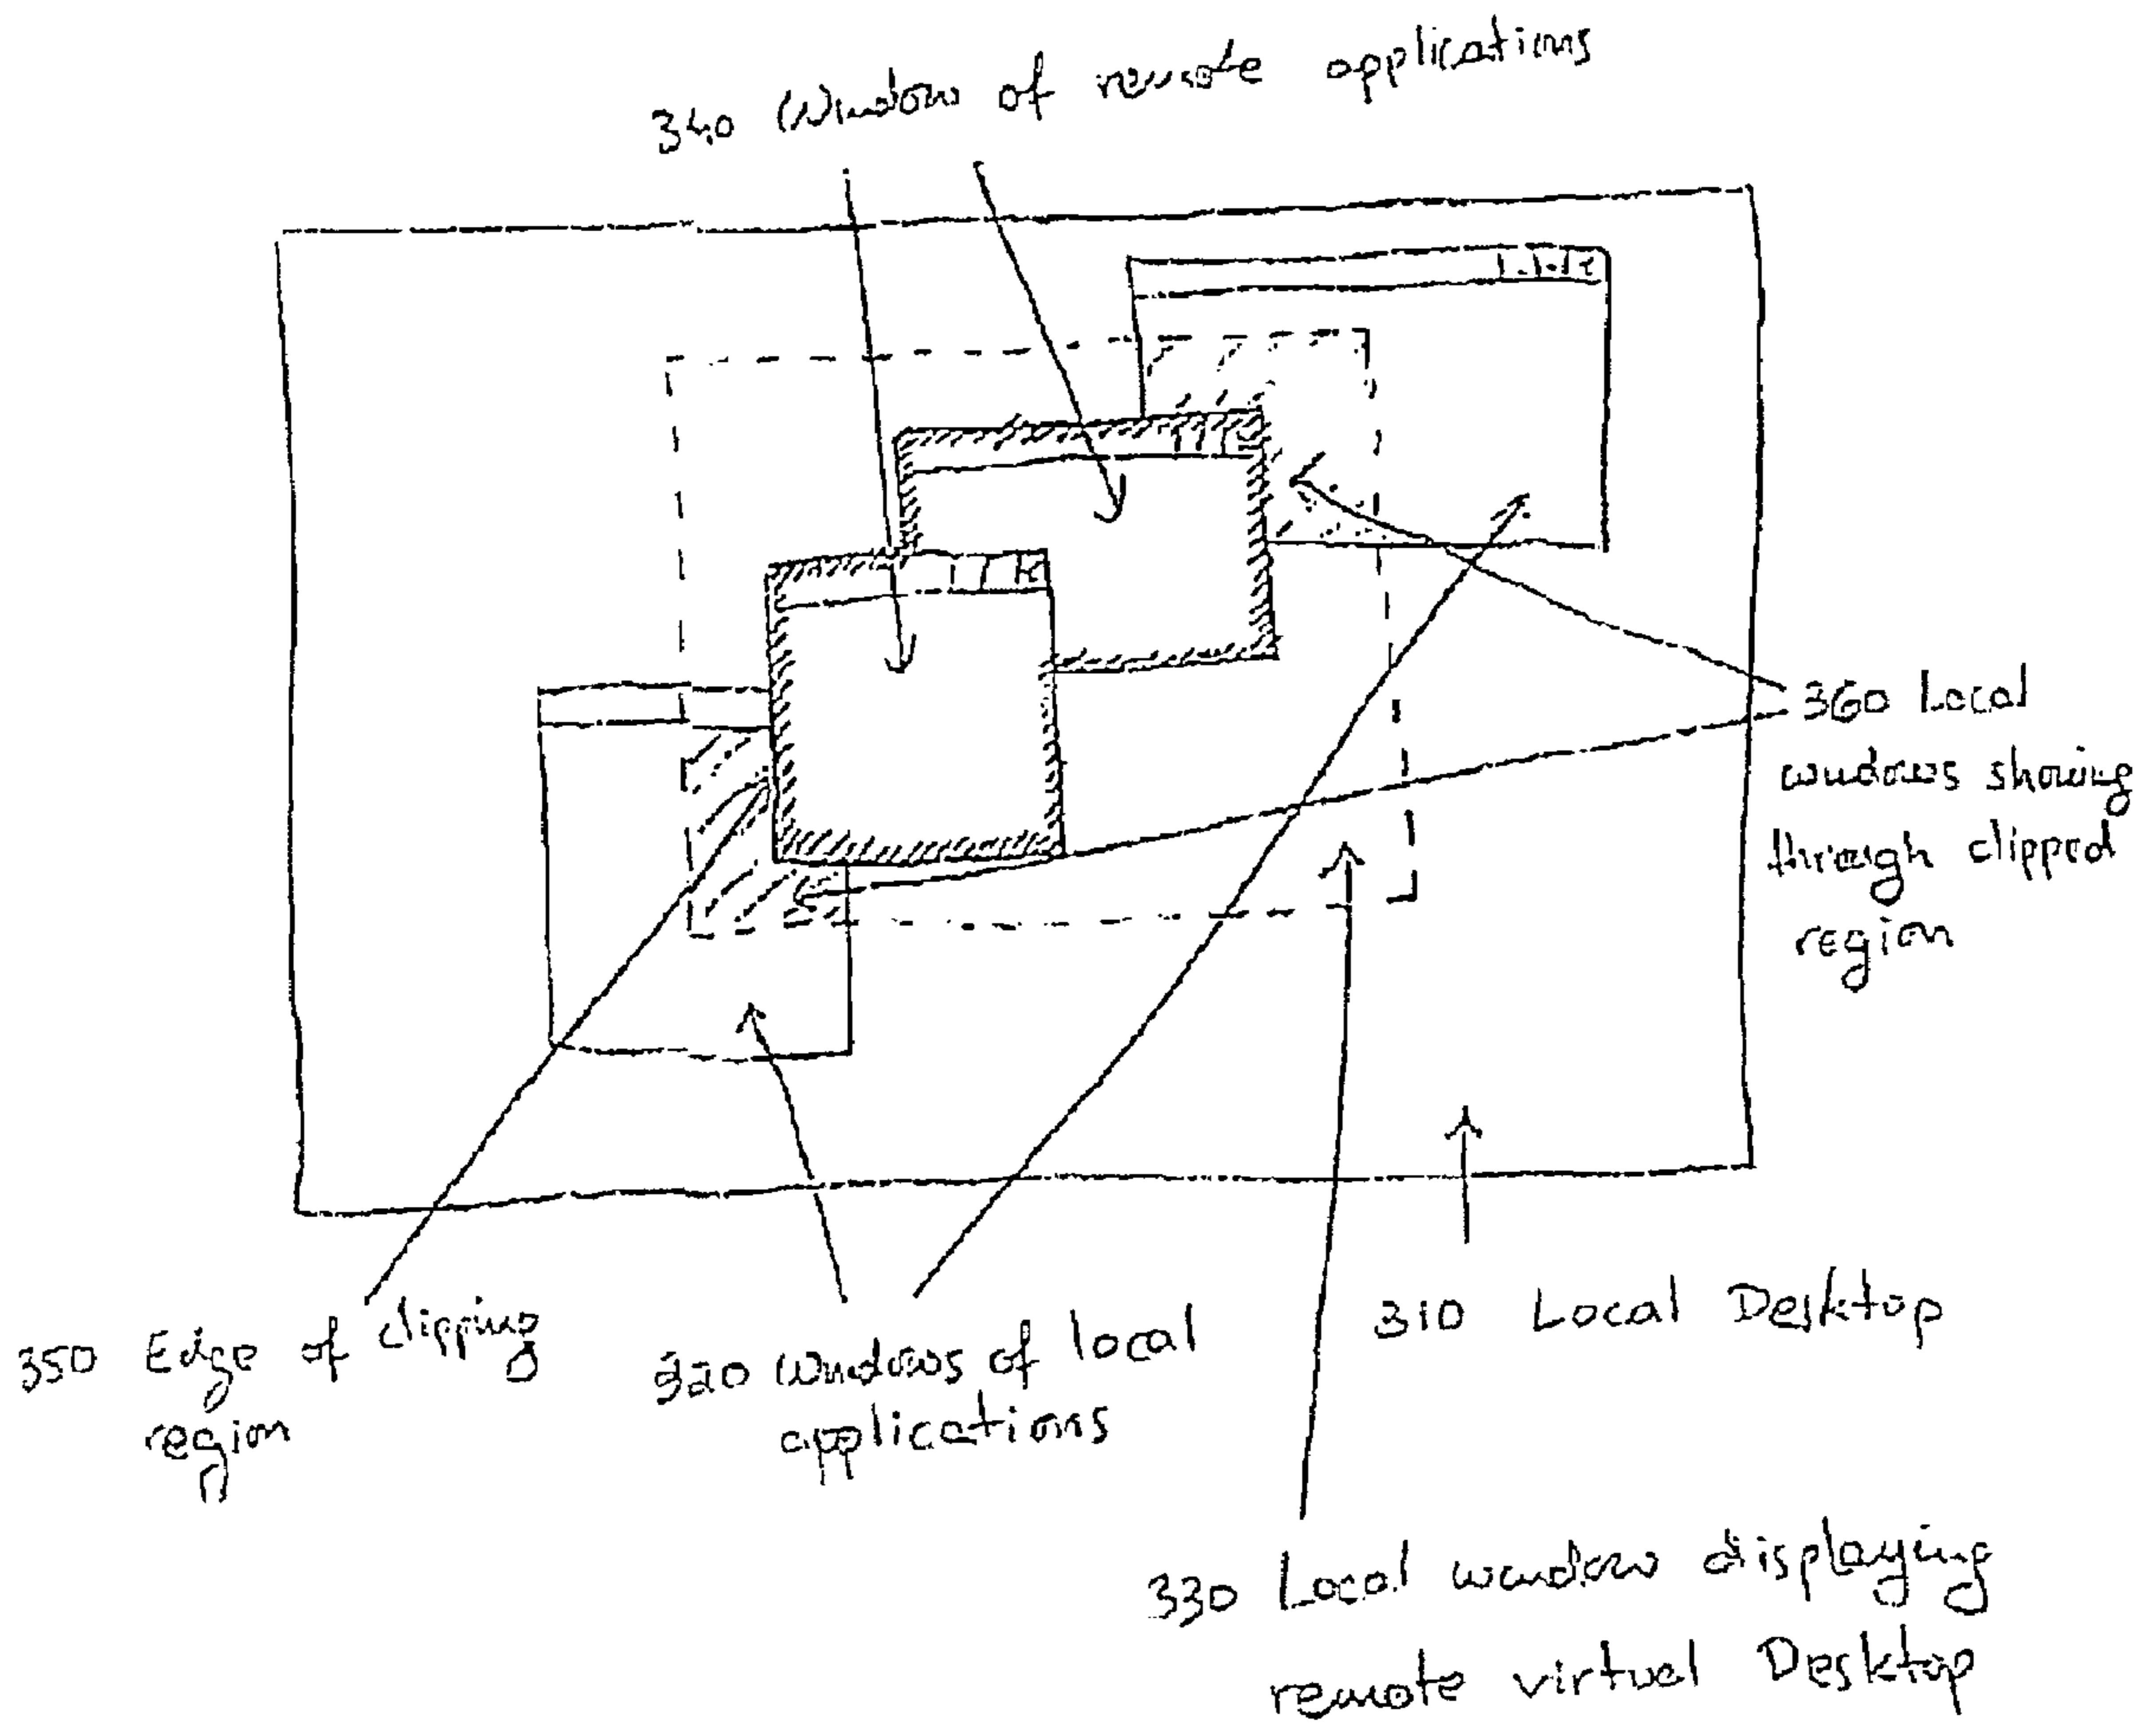 340 Window of remote applications
360 Local
windows showing
through clipped
region
350 Edge of clipping
region
320 Windows of local
applications
310 Local Desktop
330 Local window displaying
remote virtual Desktop